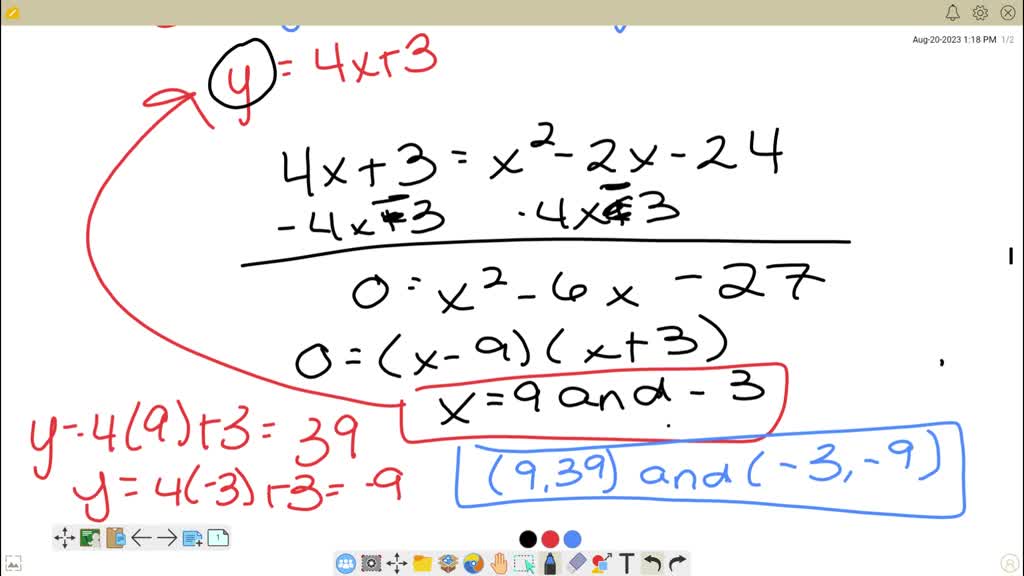 Aug-20-2023 1:18 PM 1/2
y = 4x+3
4x+3 = x² - 2x - 24
-4x-3 -4x-3
0 = x² - 6x - 27
0 = (x-9)(x+3)
x = 9 and -3
y = 4(9)+3 = 39
y = 4(-3)+3 = -9
(9,39) and (-3,-9)
1
T